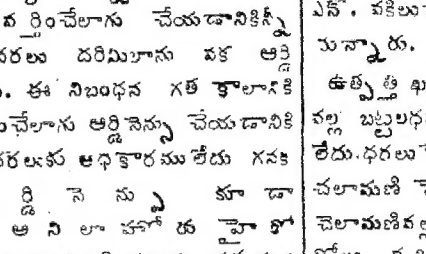 వర్తించేలాగు చేయడానికిన్నీ
దరిమిలాను వక ఆర్డి
. ఈ నిబంధన గత కాలానికి
చేలాగు ఆర్డినెన్సు చేయడానికి
అధికారము లేదు గనక
ర్డి నె న్సు కూ డా
ఆ ని లా హో రు హై కో
ఎన్. వకీలు
మన్నారు.
ఉత్పత్తి ఖ
వల్ల బట్టలధ
లేదు. ధరలు
చలామణి
చెలామణివల్ల